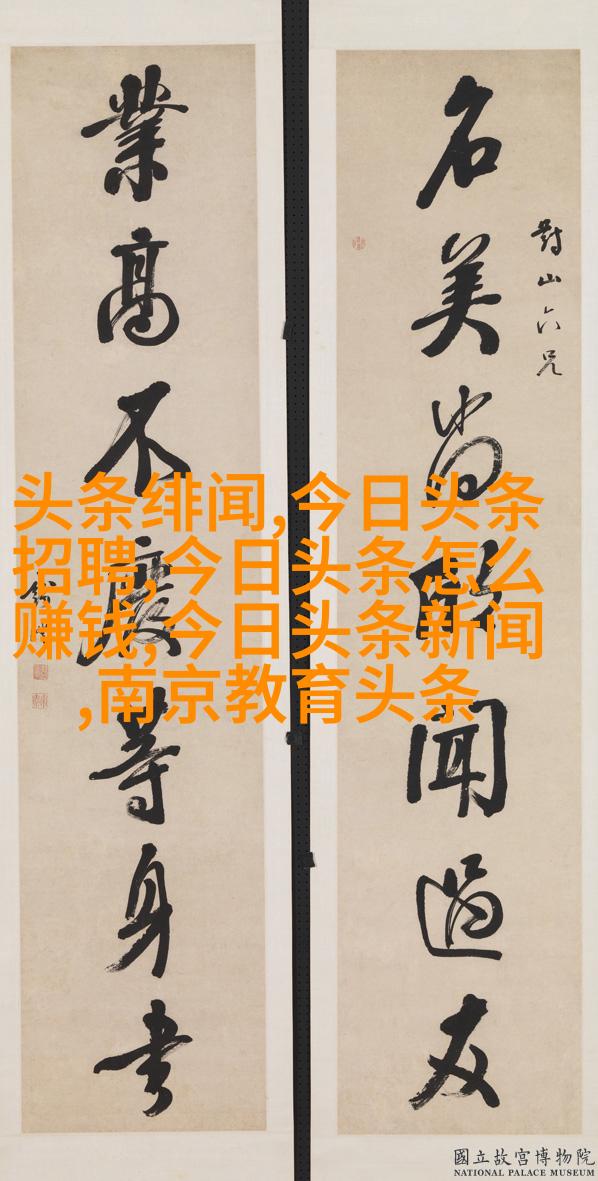 名美尚聞過友
對山六兄
業高不廢等身書
头条绯闻,今日头条
招聘,今日头条怎么
赚钱,今日头条新闻
,南京教育头条
國立故宮博物院
NATIONAL PALACE MUSEUM